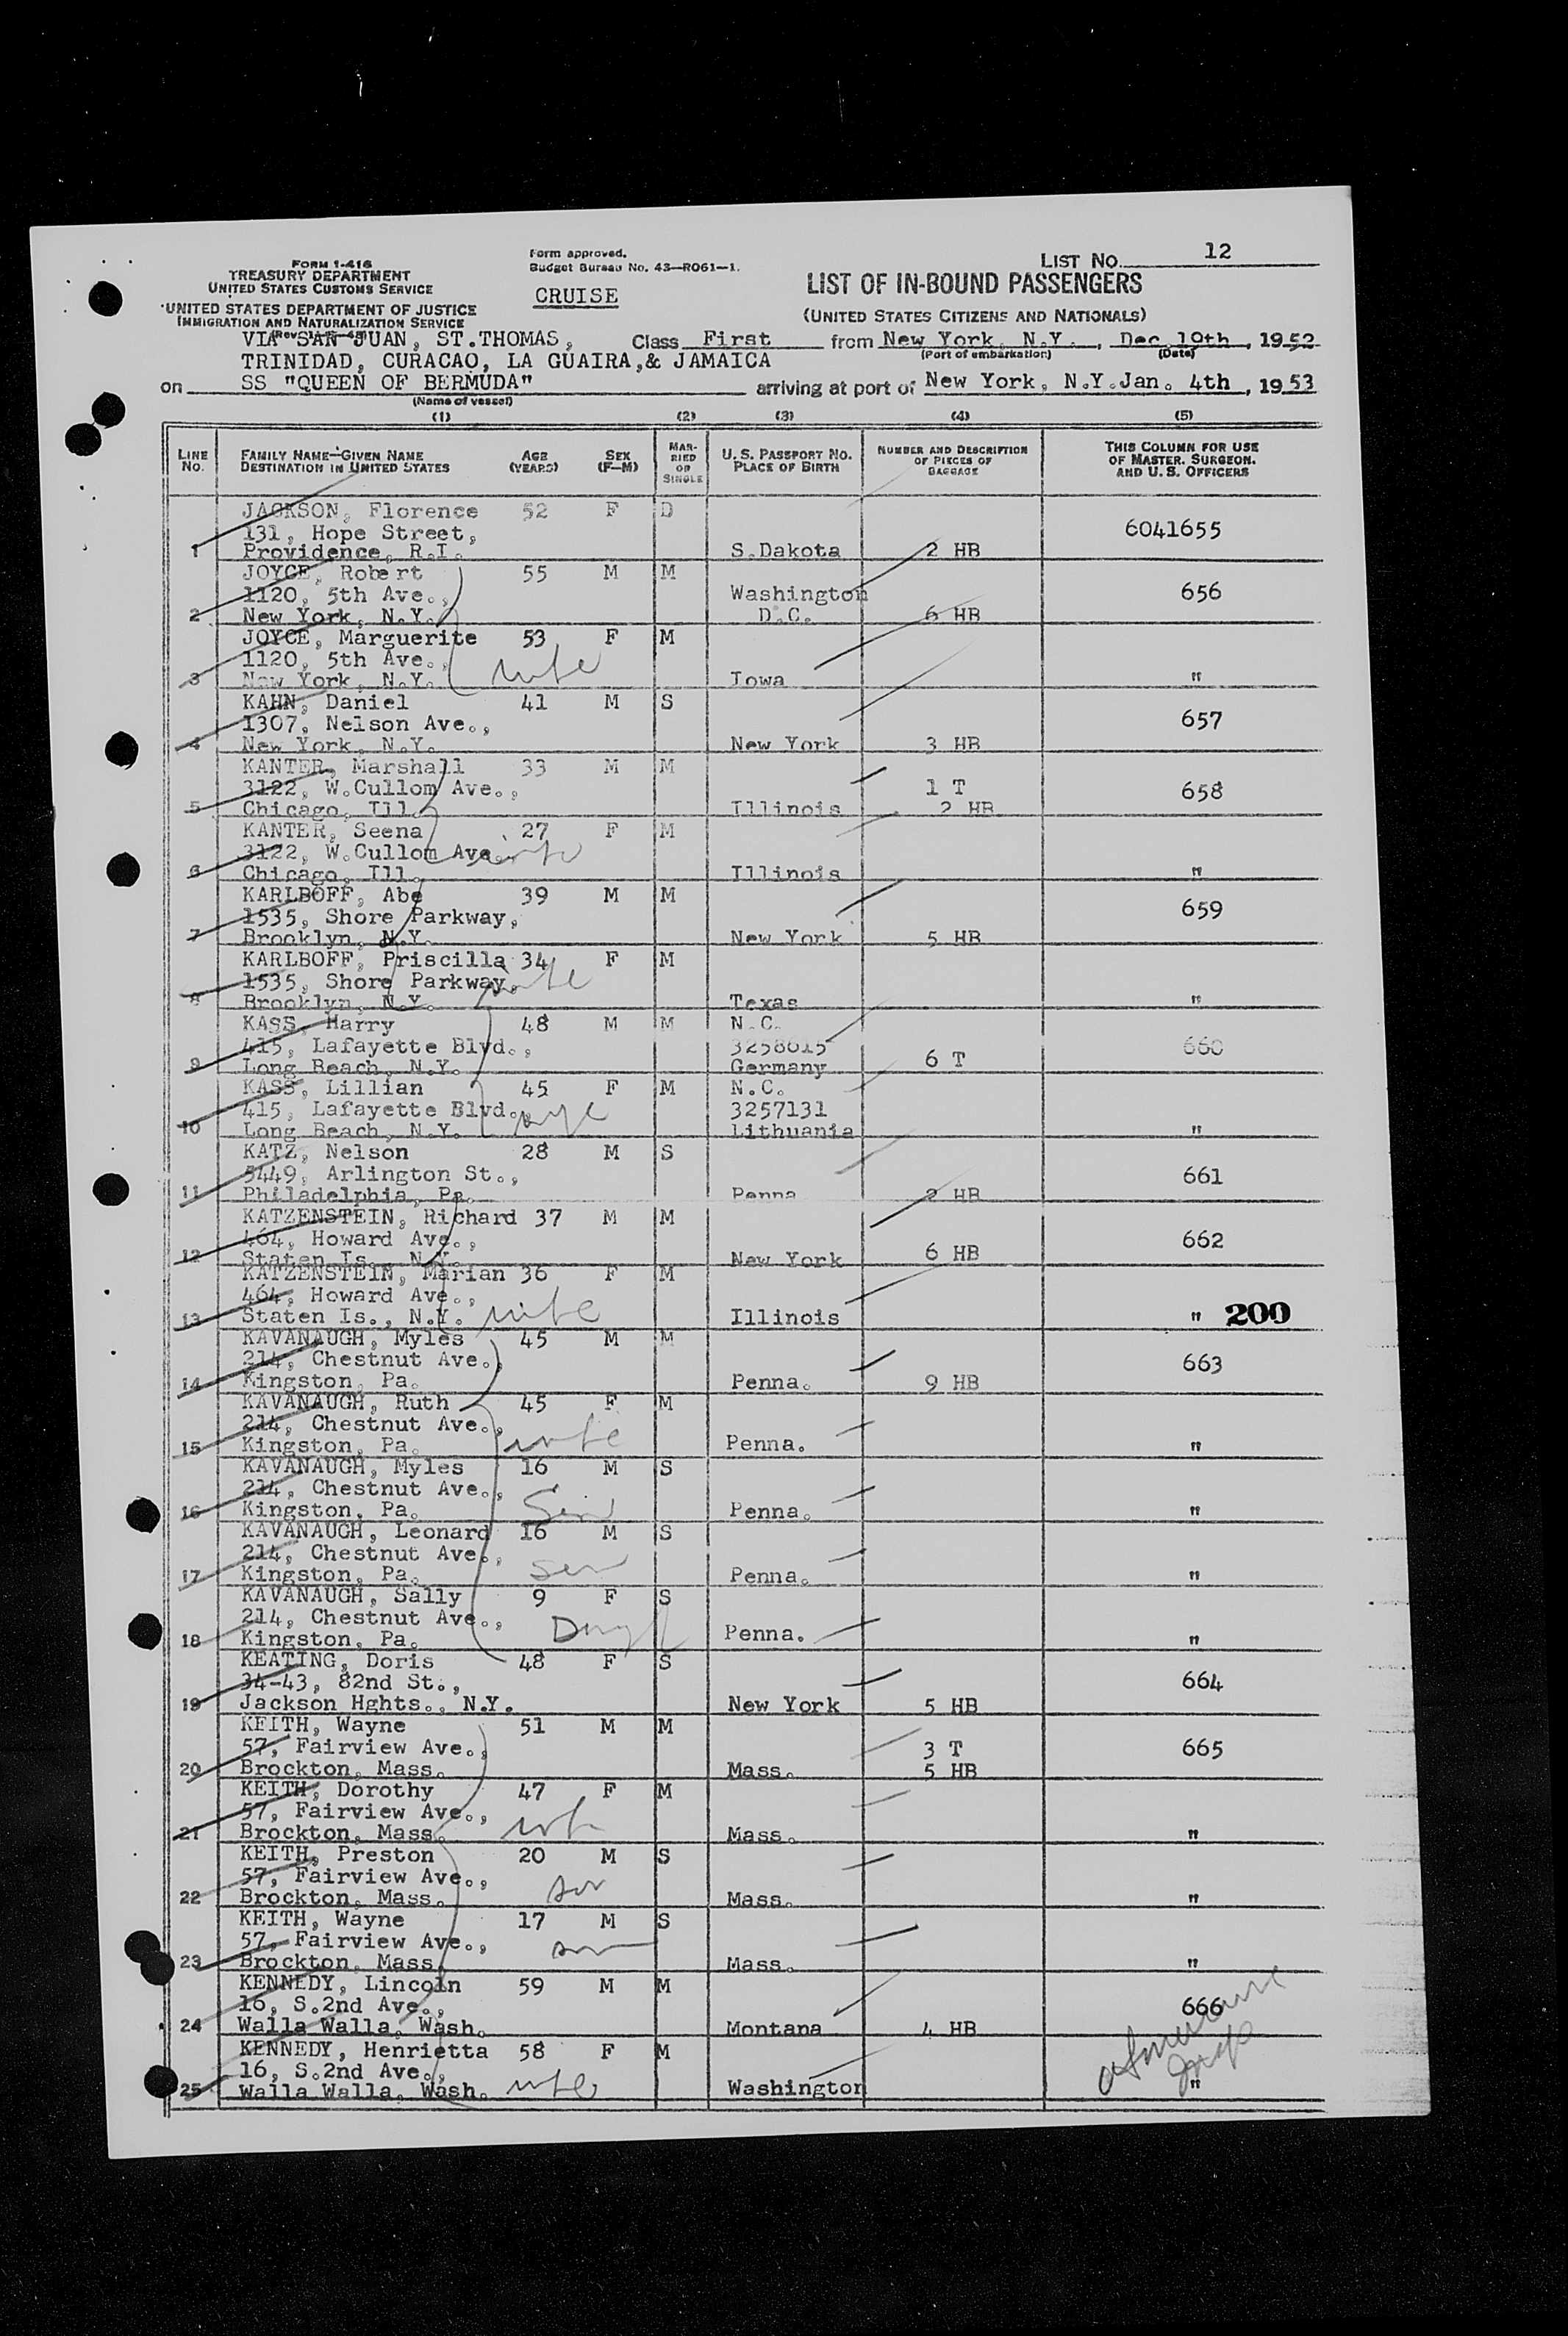 LIST NO. 12
FORM I-416
TREASURY DEPARTMENT
UNITED STATES CUSTOMS SERVICE
UNITED STATES DEPARTMENT OF JUSTICE
IMMIGRATION AND NATURALIZATION SERVICE
Form approved.
Budget Bureau No. 43—R061—1.
CRUISE
LIST OF IN-BOUND PASSENGERS
(UNITED STATES CITIZENS AND NATIONALS)
VIA SAN JUAN, ST.THOMAS, Class First from New York, N.Y., Dec.19th, 1952
(Port of embarkation) (Date)
TRINIDAD, CURACAO, LA GUAIRA,& JAMAICA
on SS "QUEEN OF BERMUDA" arriving at port of New York, N.Y.Jan. 4th, 1953
(Name of vessel)
(1) (2) (3) (4) (5)
LINE NO. FAMILY NAME—GIVEN NAME DESTINATION IN UNITED STATES AGE (YEARS) SEX (F—M) MARRIED OR SINGLE U. S. PASSPORT NO. PLACE OF BIRTH NUMBER AND DESCRIPTION OF PIECES OF BAGGAGE THIS COLUMN FOR USE OF MASTER. SURGEON. AND U. S. OFFICERS
JACKSON, Florence 52 F D
131, Hope Street, 6041655
1 Providence, R.I. S.Dakota 2 HB
JOYCE, Robert 55 M M
1120, 5th Ave., Washington 656
2 New York, N.Y. D.C. 6 HB
JOYCE, Marguerite 53 F M
1120, 5th Ave., wife
3 New York, N.Y. Iowa "
KAHN, Daniel 41 M S
1307, Nelson Ave., 657
4 New York, N.Y. New York 3 HB
KANTER, Marshall 33 M M
3122, W.Cullom Ave., 1 T 658
5 Chicago, Ill. Illinois 2 HB
KANTER, Seena 27 F M
3122, W.Cullom Ave. wife
6 Chicago, Ill. Illinois "
KARLBOFF, Abe 39 M M
1535, Shore Parkway, 659
7 Brooklyn, N.Y. New York 5 HB
KARLBOFF, Priscilla 34 F M
1535, Shore Parkway, wife
8 Brooklyn, N.Y. Texas "
KASS, Harry 48 M M N.C.
415, Lafayette Blvd., 3258615 660
9 Long Beach, N.Y. Germany 6 T
KASS, Lillian 45 F M N.C.
415, Lafayette Blvd., wife 3257131
10 Long Beach, N.Y. Lithuania "
KATZ, Nelson 28 M S
5449, Arlington St., 661
11 Philadelphia, Pa. Penna 2 HB
KATZENSTEIN, Richard 37 M M
464, Howard Ave., 662
12 Staten Is., N.Y. New York 6 HB
KATZENSTEIN, Marian 36 F M
464, Howard Ave.,
13 Staten Is., N.Y. wife Illinois " 200
KAVANAUGH, Myles 45 M M
214, Chestnut Ave., 663
14 Kingston, Pa. Penna. 9 HB
KAVANAUGH, Ruth 45 F M
214, Chestnut Ave.,
15 Kingston, Pa. wife Penna. "
KAVANAUGH, Myles 16 M S
214, Chestnut Ave.,
16 Kingston, Pa. Son Penna. "
KAVANAUGH, Leonard 16 M S
214, Chestnut Ave.,
17 Kingston, Pa. son Penna. "
KAVANAUGH, Sally 9 F S
214, Chestnut Ave.,
18 Kingston, Pa. Penna. "
KEATING, Doris 48 F S
34-43, 82nd St., 664
19 Jackson Hghts., N.Y. New York 5 HB
KEITH, Wayne 51 M M
57, Fairview Ave., 3 T 665
20 Brockton, Mass. Mass. 5 HB
KEITH, Dorothy 47 F M
57, Fairview Ave.,
21 Brockton, Mass. wife Mass. "
KEITH, Preston 20 M S
57, Fairview Ave., son
22 Brockton, Mass. Mass. "
KEITH, Wayne 17 M S
57, Fairview Ave., son
23 Brockton, Mass. Mass. "
KENNEDY, Lincoln 59 M M
16, S.2nd Ave., 666
24 Walla Walla, Wash. Montana 4 HB
KENNEDY, Henrietta 58 F M
16, S.2nd Ave.,
25 Walla Walla, Wash. wife Washington "